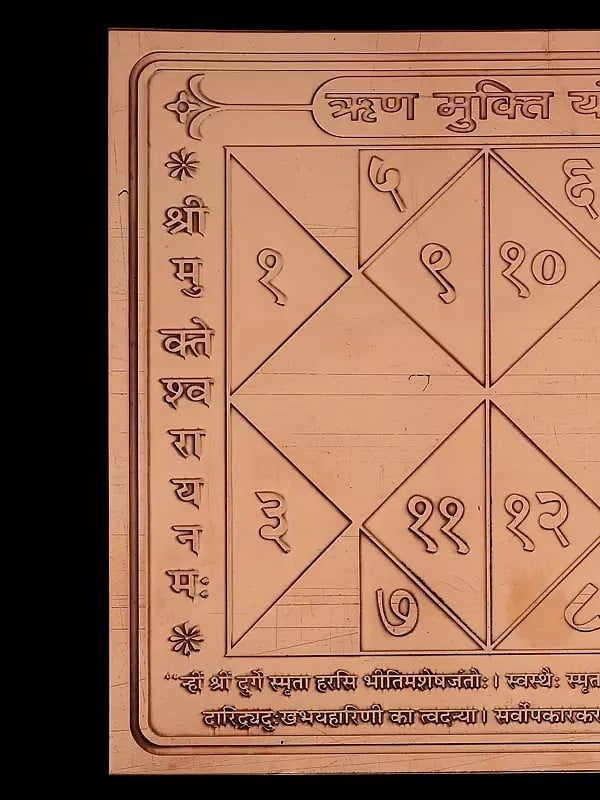 ऋण मुक्ति
श्री
मु
क्ते
श्व
रा
य
न
मः
५
६
१
९
१०
३
११
१२
७
८
ह्रीं श्रीं दुर्गे स्मृता हरसि भीतिमशेषजंतोः। स्वस्थैः
दारिद्र्यदुःखभयहारिणी का त्वदन्या।